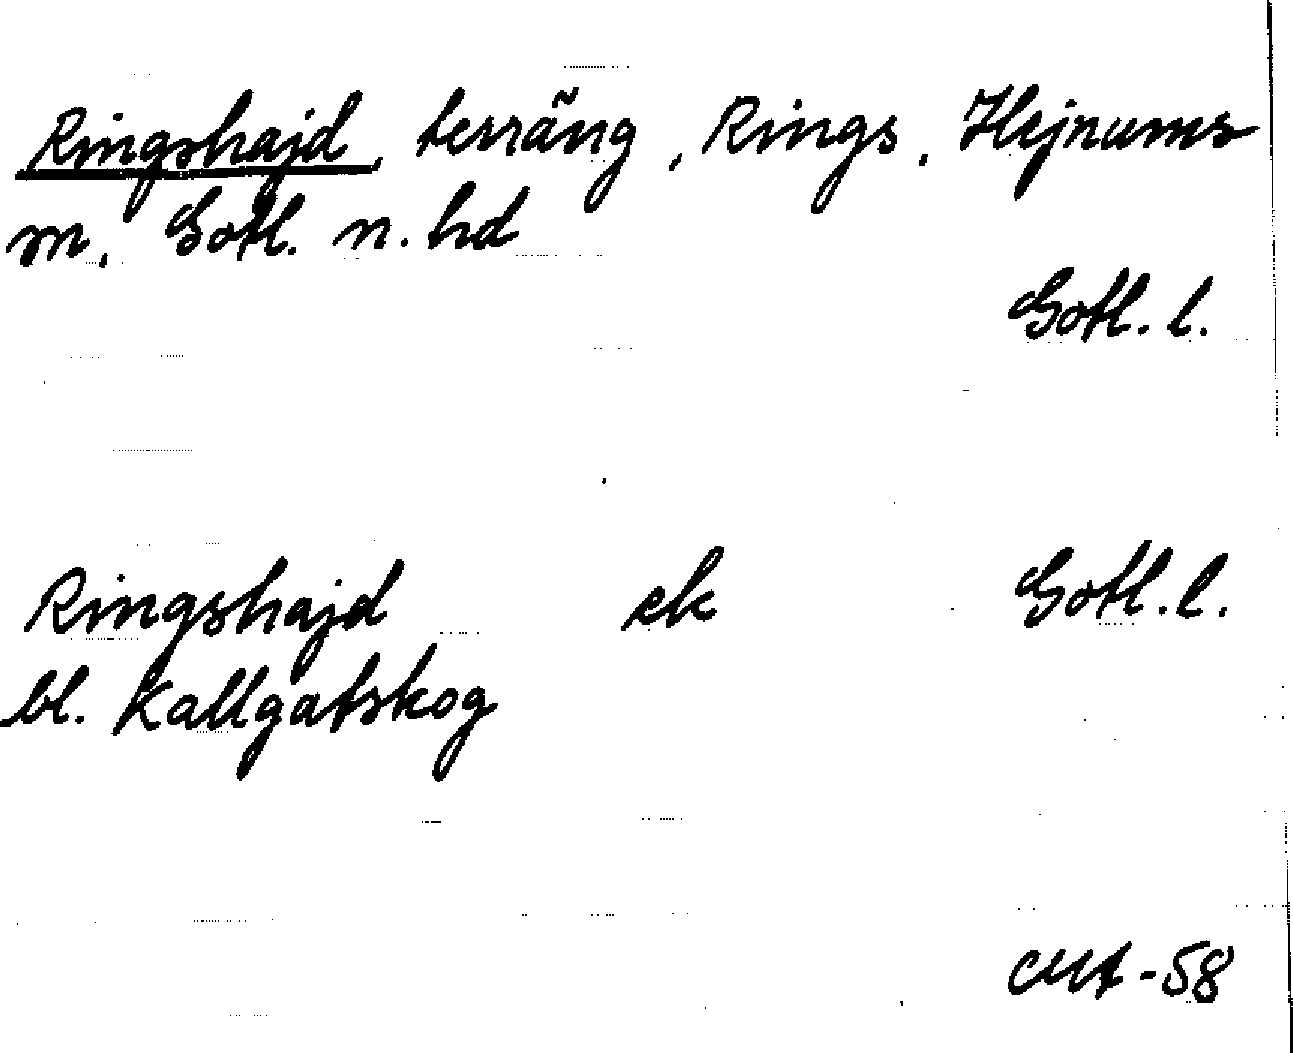 Ringshajd, terräng, Rings, Hejnums
m. Gotl. n. hd
Gotl. l.
Ringshajd ek Gotl. l.
bl. Kallgatskog
CMA-58